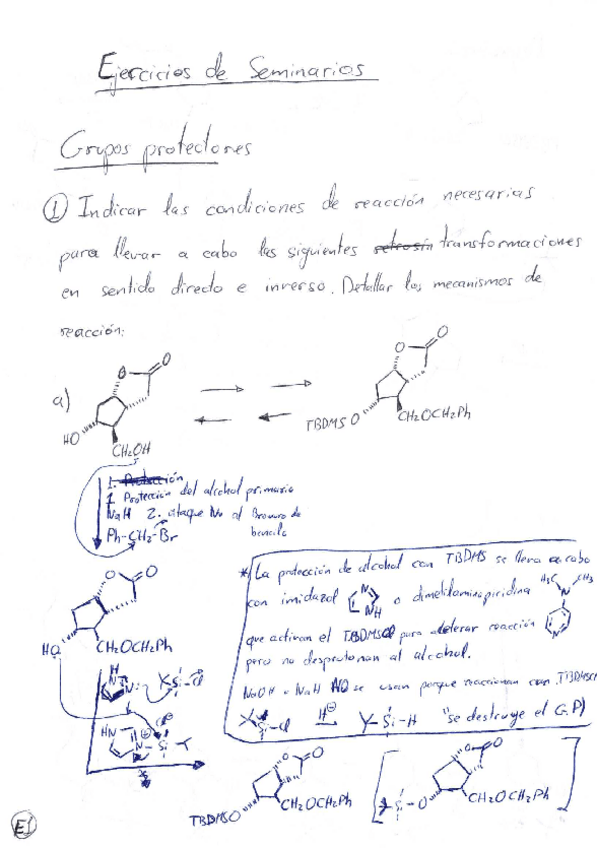 Ejercicios de Seminarios
Grupos protectores
① Indicar las condiciones de reacción necesarias
para llevar a cabo las siguientes retrosín transformaciones
en sentido directo e inverso. Detallar los mecanismos de
reacción:
a)
O
O
HO
CH2OH
O
O
TBDMSO
CH2OCH2Ph
1. Protección
1. Protección del alcohol primario
NaH 2. ataque Nu al Bromuro de
bencilo
Ph-CH2-Br
O
O
HO
CH2OCH2Ph
* La protección de alcohol con TBDMS se lleva a cabo
con imidazol
N
NH
o dimetilaminopiridina
H3C
N
CH3
N
que activan el TBDMSCl para acelerar reacción
pero no desprotonan al alcohol.
NaOH o NaH NO se usan porque reaccionan con TBDMSCl
Si-Cl
H⊖
Si-H
"se destruye el G.P)
H
N
N:
Si-Cl
HN
N
⊕
Si
*
TBDMSO
O
O
CH2OCH2Ph
Si-O
O
O
CH2OCH2Ph
E1